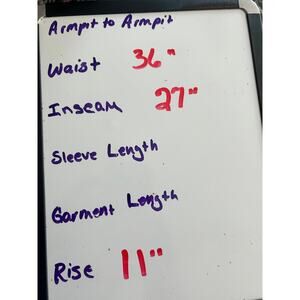 Armpit to Armpit
Waist 36"
Inseam 27"
Sleeve Length
Garment Length
Rise 11"